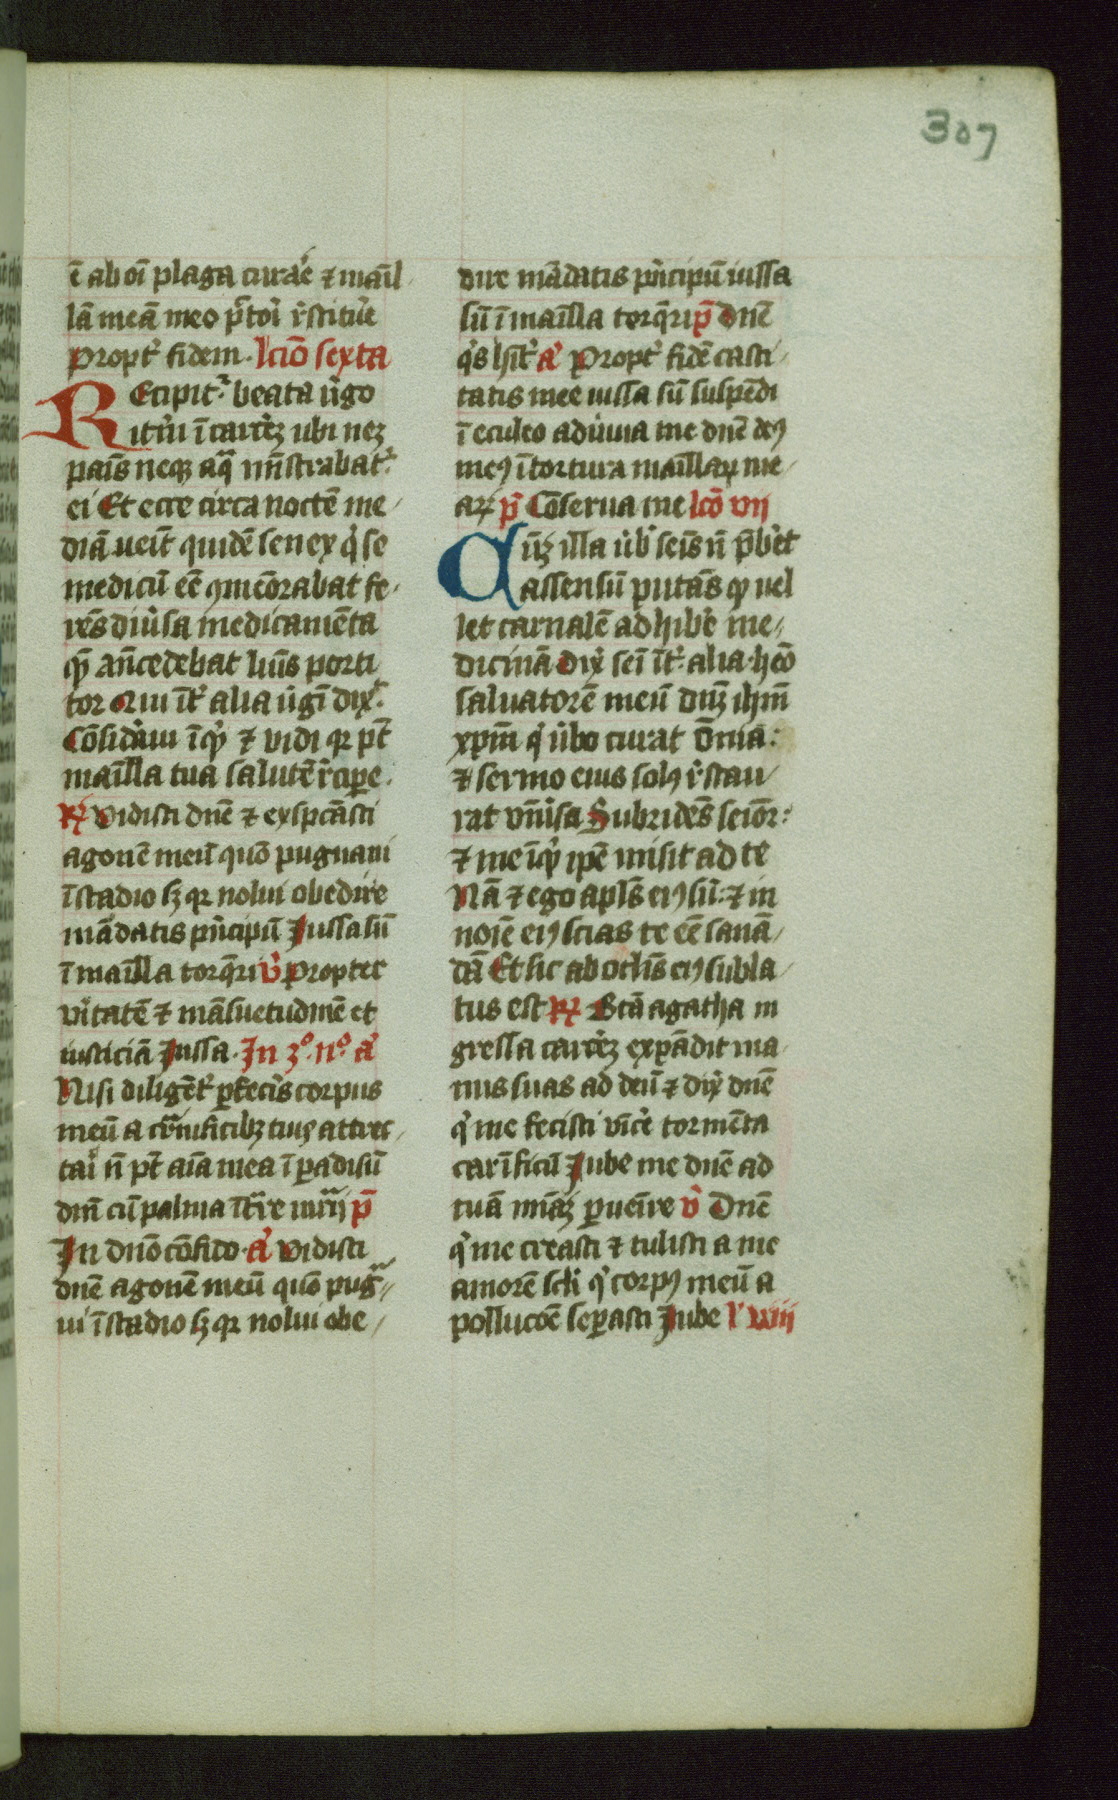 307
ē ab oī plaga curaē ⁊ mamīl
lā meā meo p̄tori r̄stituē
Propt̉ fidem. lc̄io sexta
REcipit̉ beata ūgo
itrū ī carcēȝ ubi neȝ
panīs neqȝ aqͣ mīstrabat̉
ei Et ecce circa noctē me
diā ueīt quidē senex qͥ se
medicū eē ꝯmēorabat fe
rēs diūsa medicamēta
qē añcedebat luīs porti
tor Qui īt̉ alia ūgī dix̉
Cōsidāui īqͥ ⁊ vidi qꝛ pt̄
mamīlla tua salutē r̄cipe
℟ Vidisti dn̄e ⁊ exspcāsti
agonē meū quō pugnaui
ī stadio sȝ qꝛ nolui obedire
mādatis pⁿcipū Jussa sū
ī mamīlla torq̄ri v̉ Propter
v̉itatē ⁊ māsuetudinē et
iusticiā Jussa. In 3º. nº. a̓
Nisi diligēt̉ ꝑfecīs corpus
meū a carnificibȝ tuis attrec
tai n̄ pt̄ aīa mea ī padisū
dn̄i cū palma īt̉re mr̄ij p̄
In dn̄o cōfido. a̓ Vidisti
dn̄e agonē meū quō pugͣ
ui ī stadio sȝ qꝛ nolui obe
dire mādatis pⁿcipū iussa
sū ī mamīlla torq̄ri p̄ Dn̄e
qͥs hīt̉ a̓ Propt̉ fidē casti
tatis mee iussa sū suspēdi
ī eculeo adiuua me dn̄e deꝯ
meꝯ ī tortura mamīllaꝝ me
aꝝ p̄ Cōserua me lcō vii
Cūȝ illa ūb seīs n̄ p̄bēt
assensū putās ꝙ uel
let carnalē adhibē me
dicinā dix̉ seīi īt̉ alia heō
saluatorē meū dn̄ȝ ihm̄
xpm̄ qͥ ūbo curat om̄ia
⁊ sermo eius solꝯ r̄stau
rat vniūsa Subridēs seiōr
⁊ me īqͥ ipē misit ad te
Nā ⁊ ego apl̄s eiꝯ sū ⁊ in
noīe eiꝯ scias te eē sanā
dā Et sic ab oclīs eiꝯ subla
tus est ℟ Btā agatha in
gressa carcēȝ expādit ma
nus suas ad deū ⁊ dix̉ dn̄e
qͥ me fecisti vīcē tormēta
carīficū Jube me dn̄e ad
tuā mīaȝ ꝑueīre v̉ Dn̄e
qͥ me creasti ⁊ tulisti a me
amorē scli qͥ corpꝯ meū a
pollucōe sepasti Jube l̓ viii